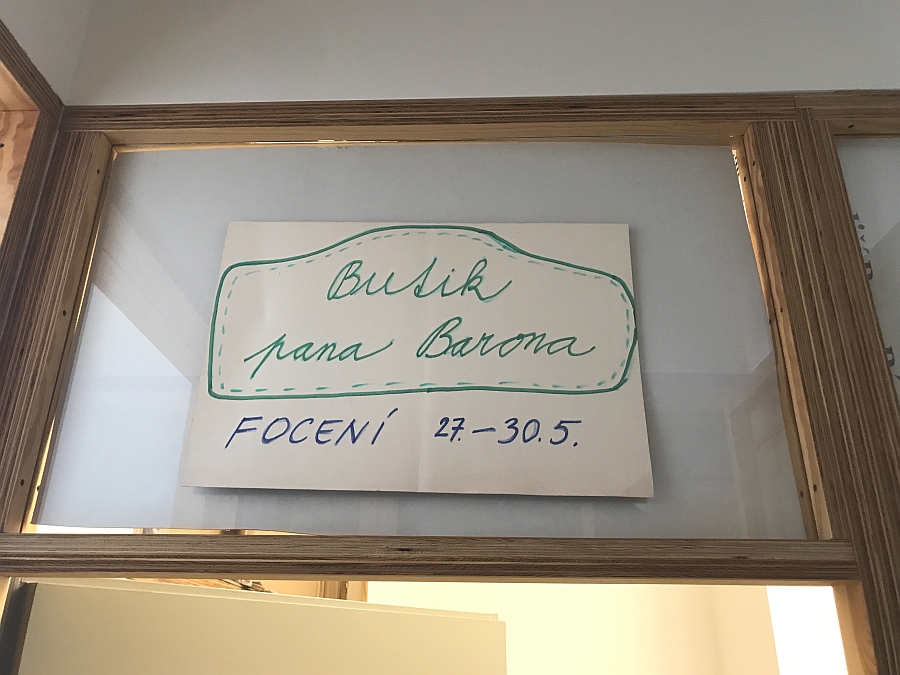 Butik
pana Barona
FOCENÍ 27.–30.5.